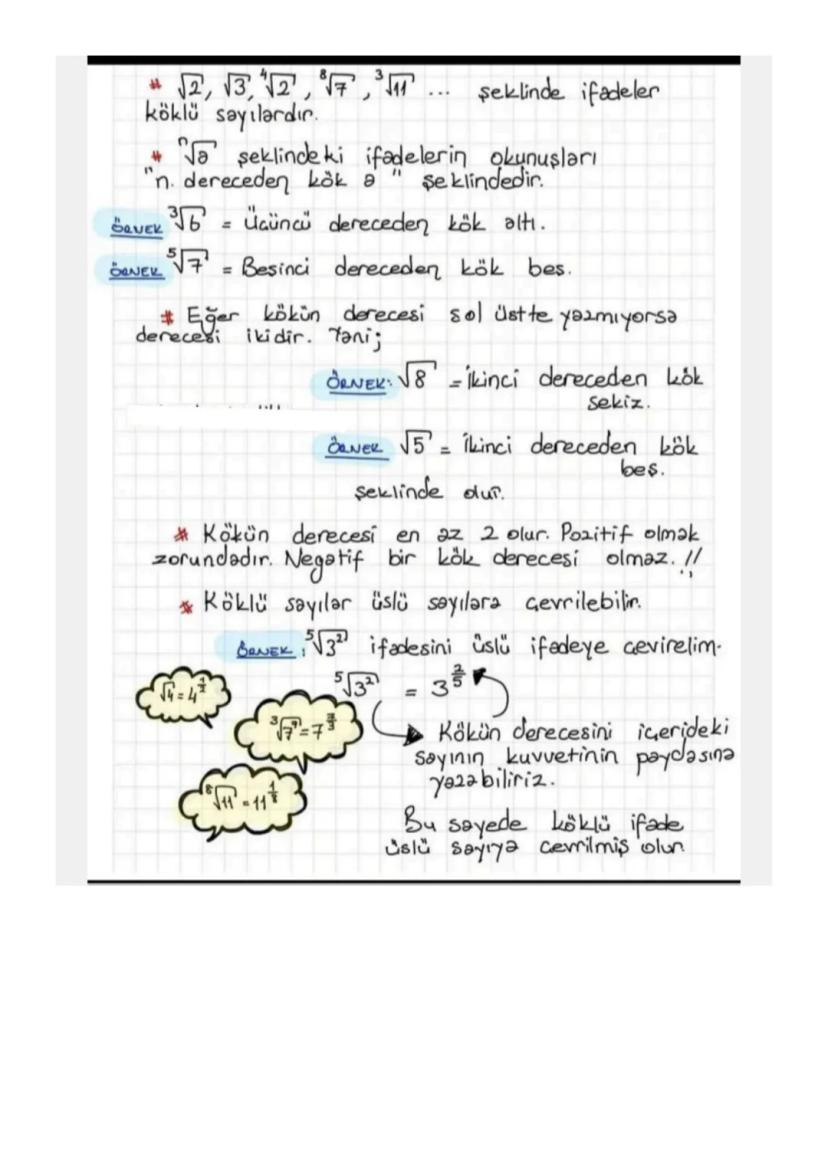 * √2, √3, ⁴√2, ⁸√7, ³√11 ... şeklinde ifadeler
köklü sayılardır.
* ⁿ√a şeklindeki ifadelerin okunuşları
"n. dereceden kök a" şeklindedir.
ÖRNEK ³√6 = Üçüncü dereceden kök altı.
ÖRNEK ⁵√7 = Beşinci dereceden kök beş.
* Eğer kökün derecesi sol üstte yazmıyorsa
derecesi ikidir. Yani;
ÖRNEK: √8 = İkinci dereceden kök
sekiz.
ÖRNEK √5 = İkinci dereceden kök
beş.
şeklinde olur.
* Kökün derecesi en az 2 olur. Pozitif olmak
zorundadır. Negatif bir kök derecesi olmaz.!!
* Köklü sayılar üslü sayılara çevrilebilir.
ÖRNEK: ⁵√3² ifadesini üslü ifadeye çevirelim.
⁵√3² = 3^(2/5)
√4 = 4^(1/2)
Kökün derecesini içerideki
sayının kuvvetinin paydasına
yazabiliriz.
⁸√11 = 11^(1/8)
Bu sayede köklü ifade
üslü sayıya çevrilmiş olur